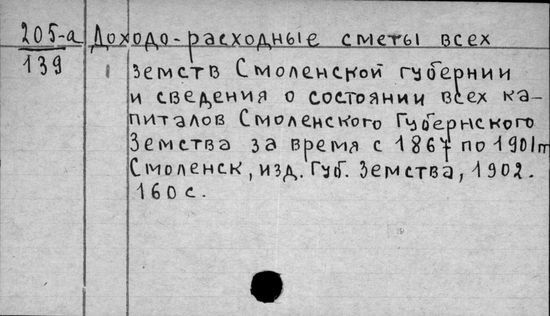 205-а Доходо-расходные сметы всех
139 земств Смоленской губернии
и сведения о состоянии всех ка-
питалов Смоленского Губернского
Земства за время с 1867 по 1901г
Смоленск, изд. Губ. Земства, 1902.
160 с.